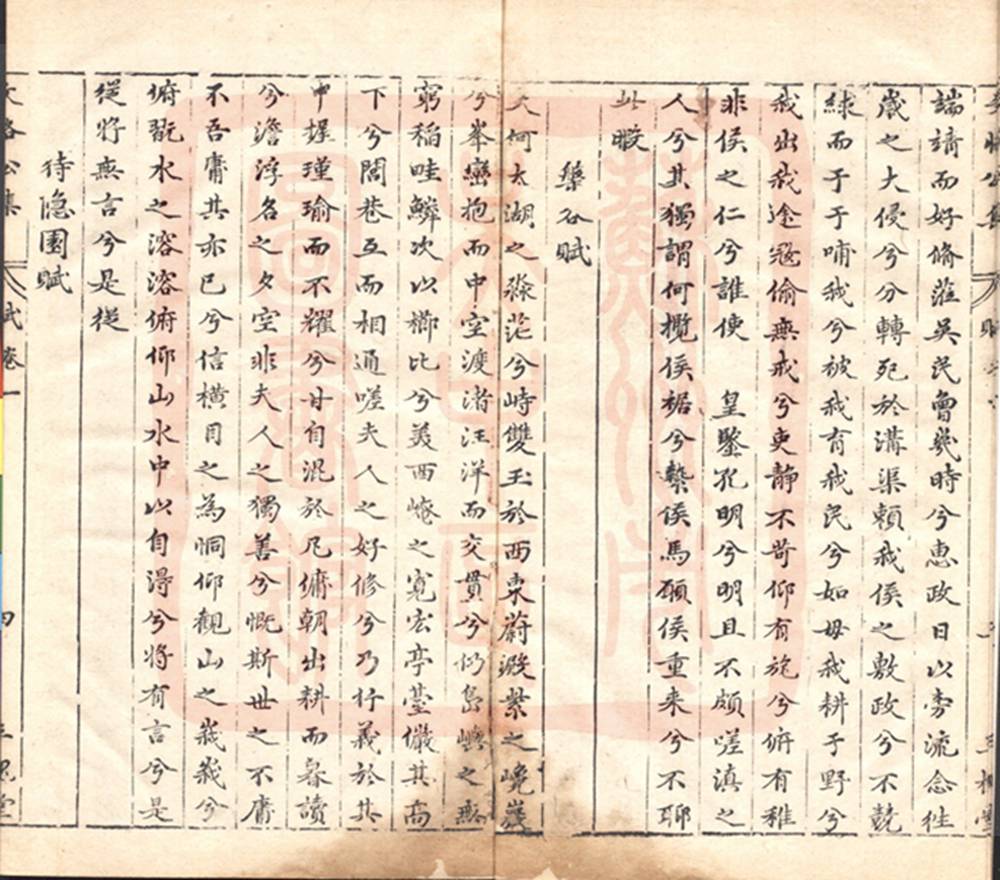 端靖而好脩蒞吳民曾幾時兮惠政日以旁流念往
歲之大侵兮分轉死於溝渠賴我侯之敷政兮不競
絿而于于哺我兮被我育我民兮如毋我耕于野兮
我出我途寇偷無戒兮吏靜不苛仰有施兮俯有稚
非侯之仁兮誰使 皇鑒孔明兮明且不頗嗟滇之
人兮其獨謂何攬侯裾兮縶侯馬願侯重来兮不聊
此暇
樂石賦
夫何太湖之淼茫兮峙雙玉於西東蔚潑紫之嵬嶷
兮峯巒抱而中空渡渚汪洋而交貫兮仍島嶼之無
窮稻畦鱗次以櫛比兮美西崦之寬宏亭臺儼其高
下兮閭巷互而相通嗟夫人之好修兮乃行義於其
中握瑾瑜而不耀兮甘自混於凡傭朝出耕而暮讀
兮澹浮名之夕空非夫人之獨善兮慨斯世之不庸
不吾庸其亦已兮信橫目之為恫仰觀山之峩峩兮
俯翫水之溶溶俯仰山水中以自得兮將有言兮是
從將無言兮是從
待隐園賦
賦卷一
四